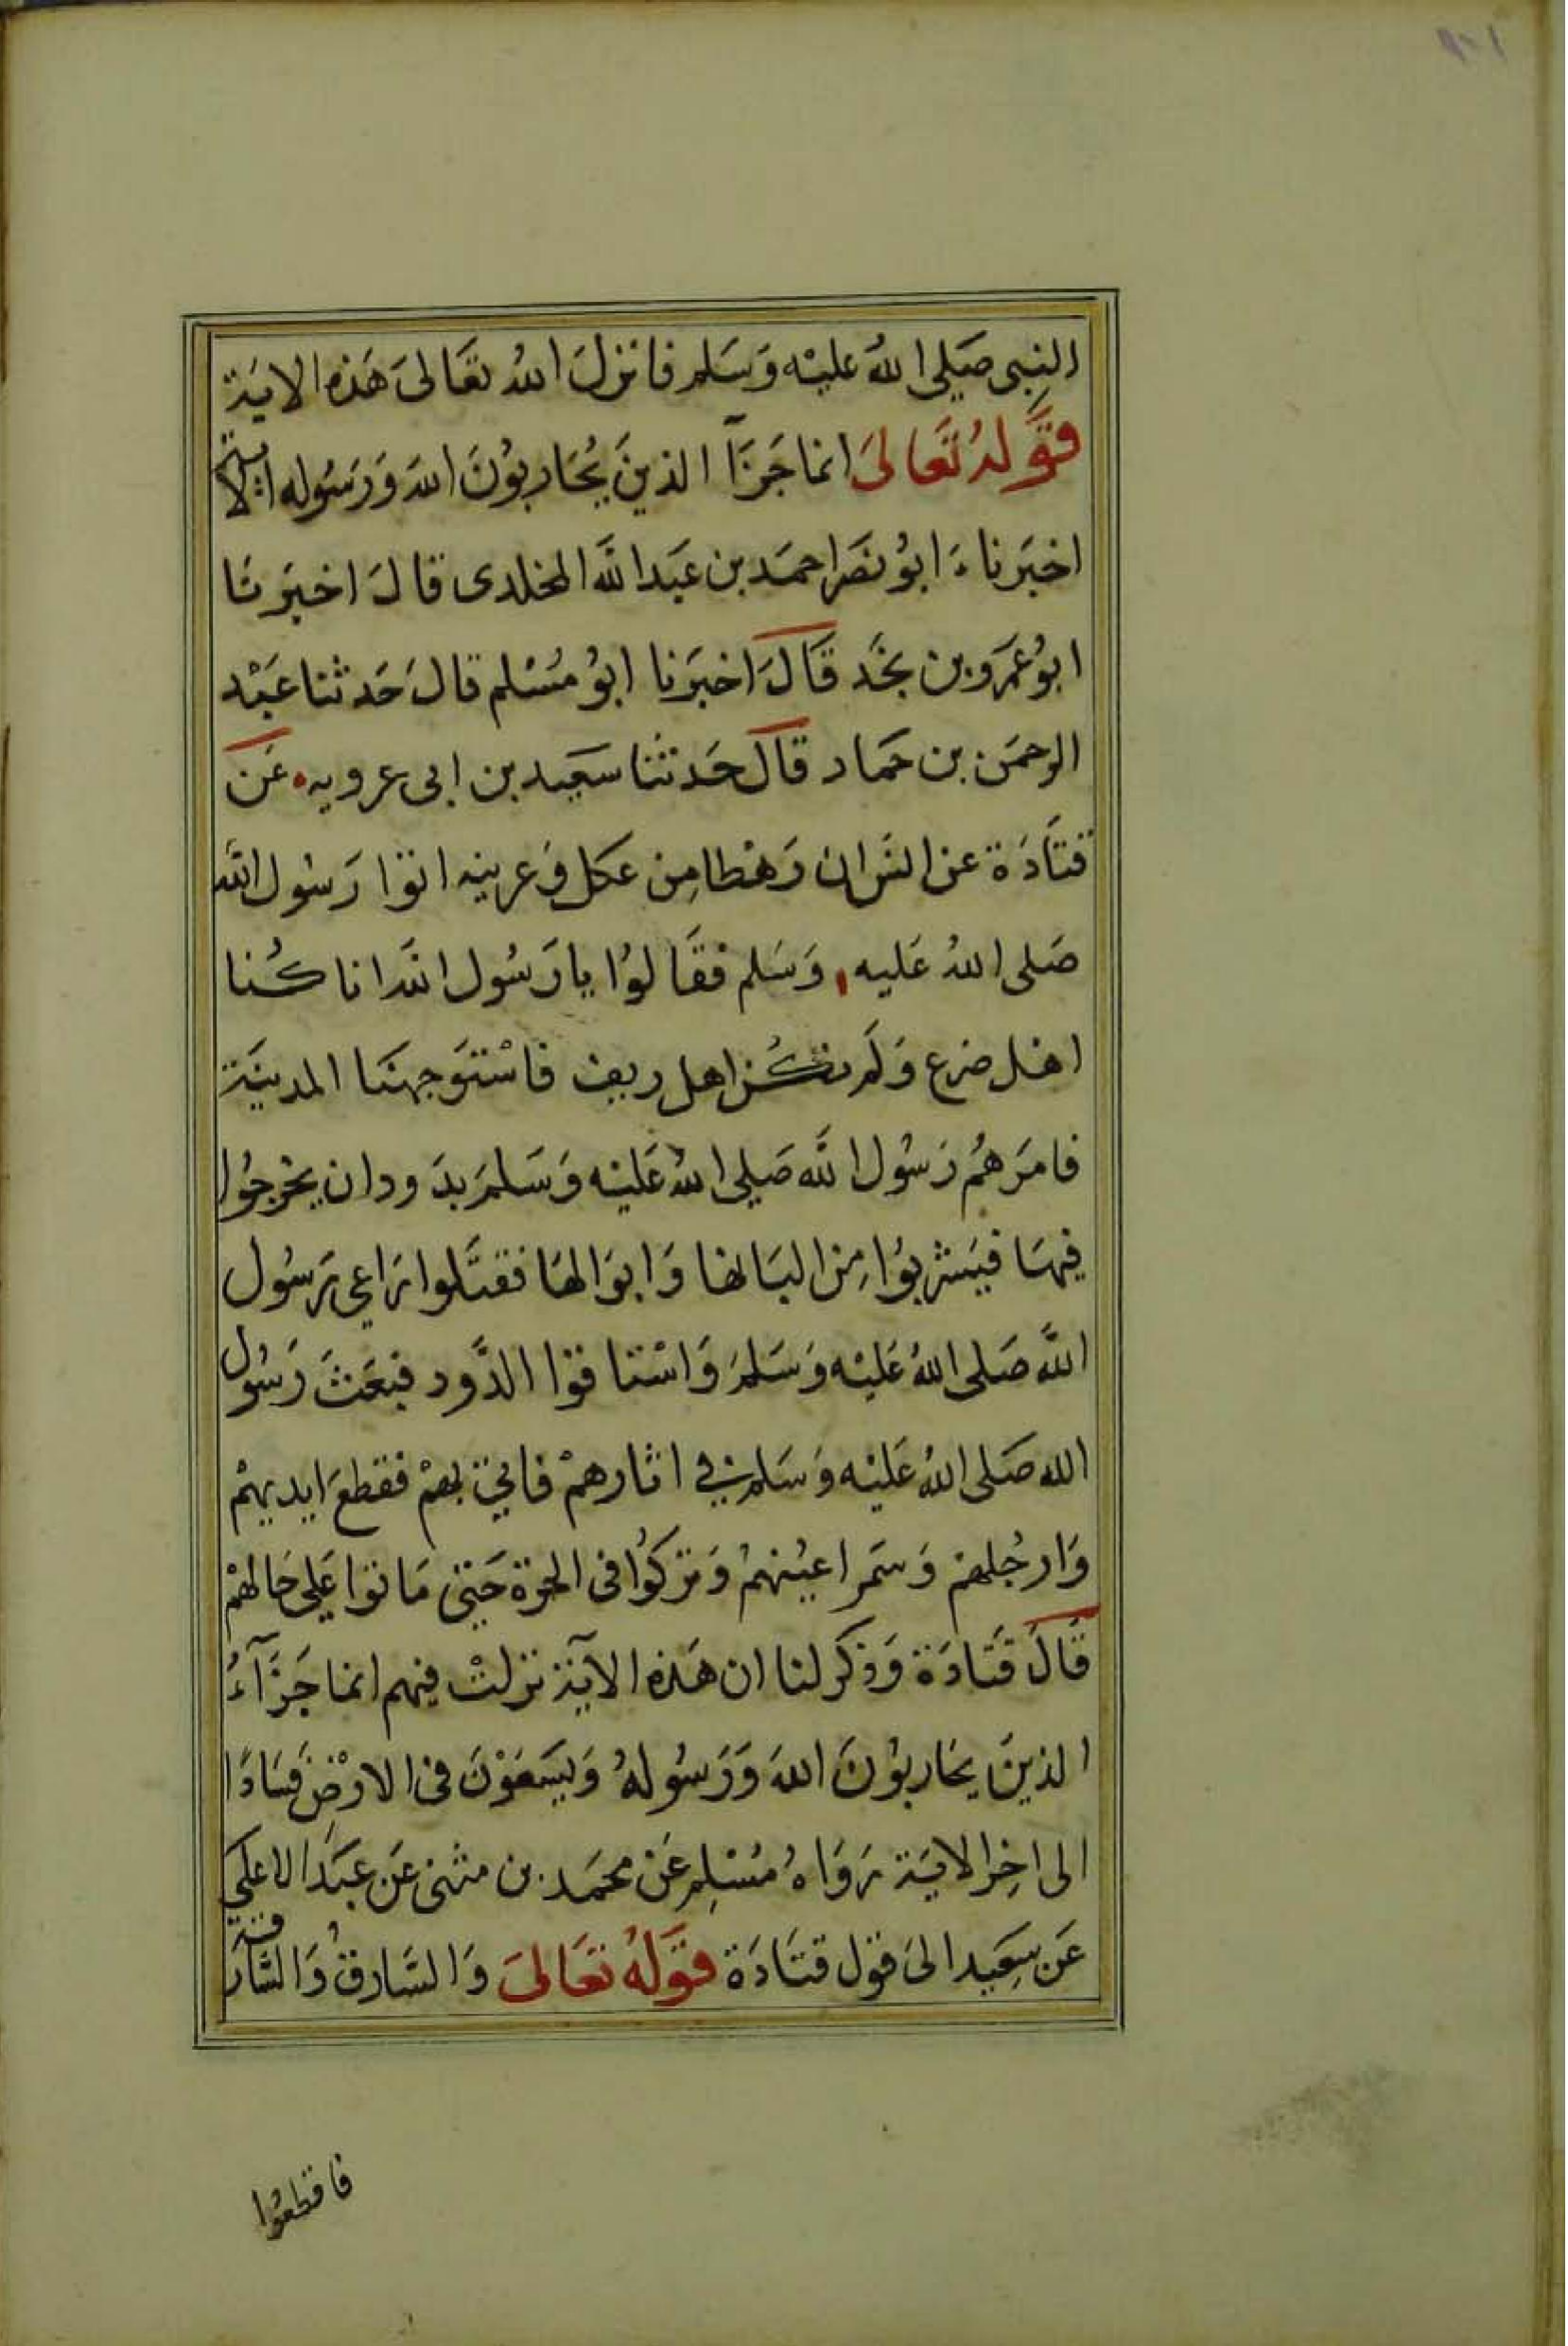 النبي صَلى اللهُ عليْه وَسَلم فانزلَ اللهُ تعَالىَ هَذه الايَة
قَوَلهُ تَعَالىَ انما جَزَآ الذينَ يُحَاربوُنَ اللهَ وَرَسُوله الاية
اخبَرناءَ ابوُ نصَر احمَد بن عَبَد اللَّه المخلدى قالَ اخبَرنَا
ابوُ عَمَرو بن نجَد قَالَ اخبَرَنا ابوُ مُسْلم قالَ حَدثنا عَبْد
الرحمَن بن حَماد قالَ حَدثنَا سَعيد بن ابى عرويه عَن
قتَادَة عن انسَ ان رَهْطا مِن عكل وَعرينه اتوا رَسُول الله
صَلى اللهُ عَليه وَسَلم فقَالوُا يا رَسُول الله انا كُنا
اهَل ضرع وَلَم نكُن اهل ريف فاسْتوَجهنَا المدينَة
فامَرهُم رَسُول اللَّه صَلى اللهُ عَليْه وَسَلمَ بدَود ان يخرجُوا
فيهَا فيَشربوُا مِن البَانها وَابوَالهَا فقتَلوا رَاعي رَسُول
اللَّه صَلى اللهُ عَليْه وَسَلمَ وَاسْتاقوا الدَّود فبَعَثَ رَسُول
الله صَلى اللهُ عَليْه وَسَلم في اثارهمْ فاتيَ بهمْ فقطعَ ايديهمْ
وَارجُلهمْ وَسَمر اعيُنهُمْ وَتركوُا فى الحرة حَتى مَاتوا عَلى حَالهمْ
قَالَ قَتادَة وَذكر لنا ان هَذه الآيَة نزلتْ فيهم انما جَزَآءُ
الذينَ يحَاربوُنَ اللهَ وَرَسُولهُ وَيسَعَوْنَ فى الارْضِ فسَادًا
الى اخِر الايَة رَوَاهُ مُسْلِم عَن محمَد بن مثنى عَن عَبَد الاعلىَ
عَن سِعَيد الىَ قول قتَادَة قَوَلهُ تعَالىَ وَالسَارقُ وَالسَّارقة
فاقطعُوا